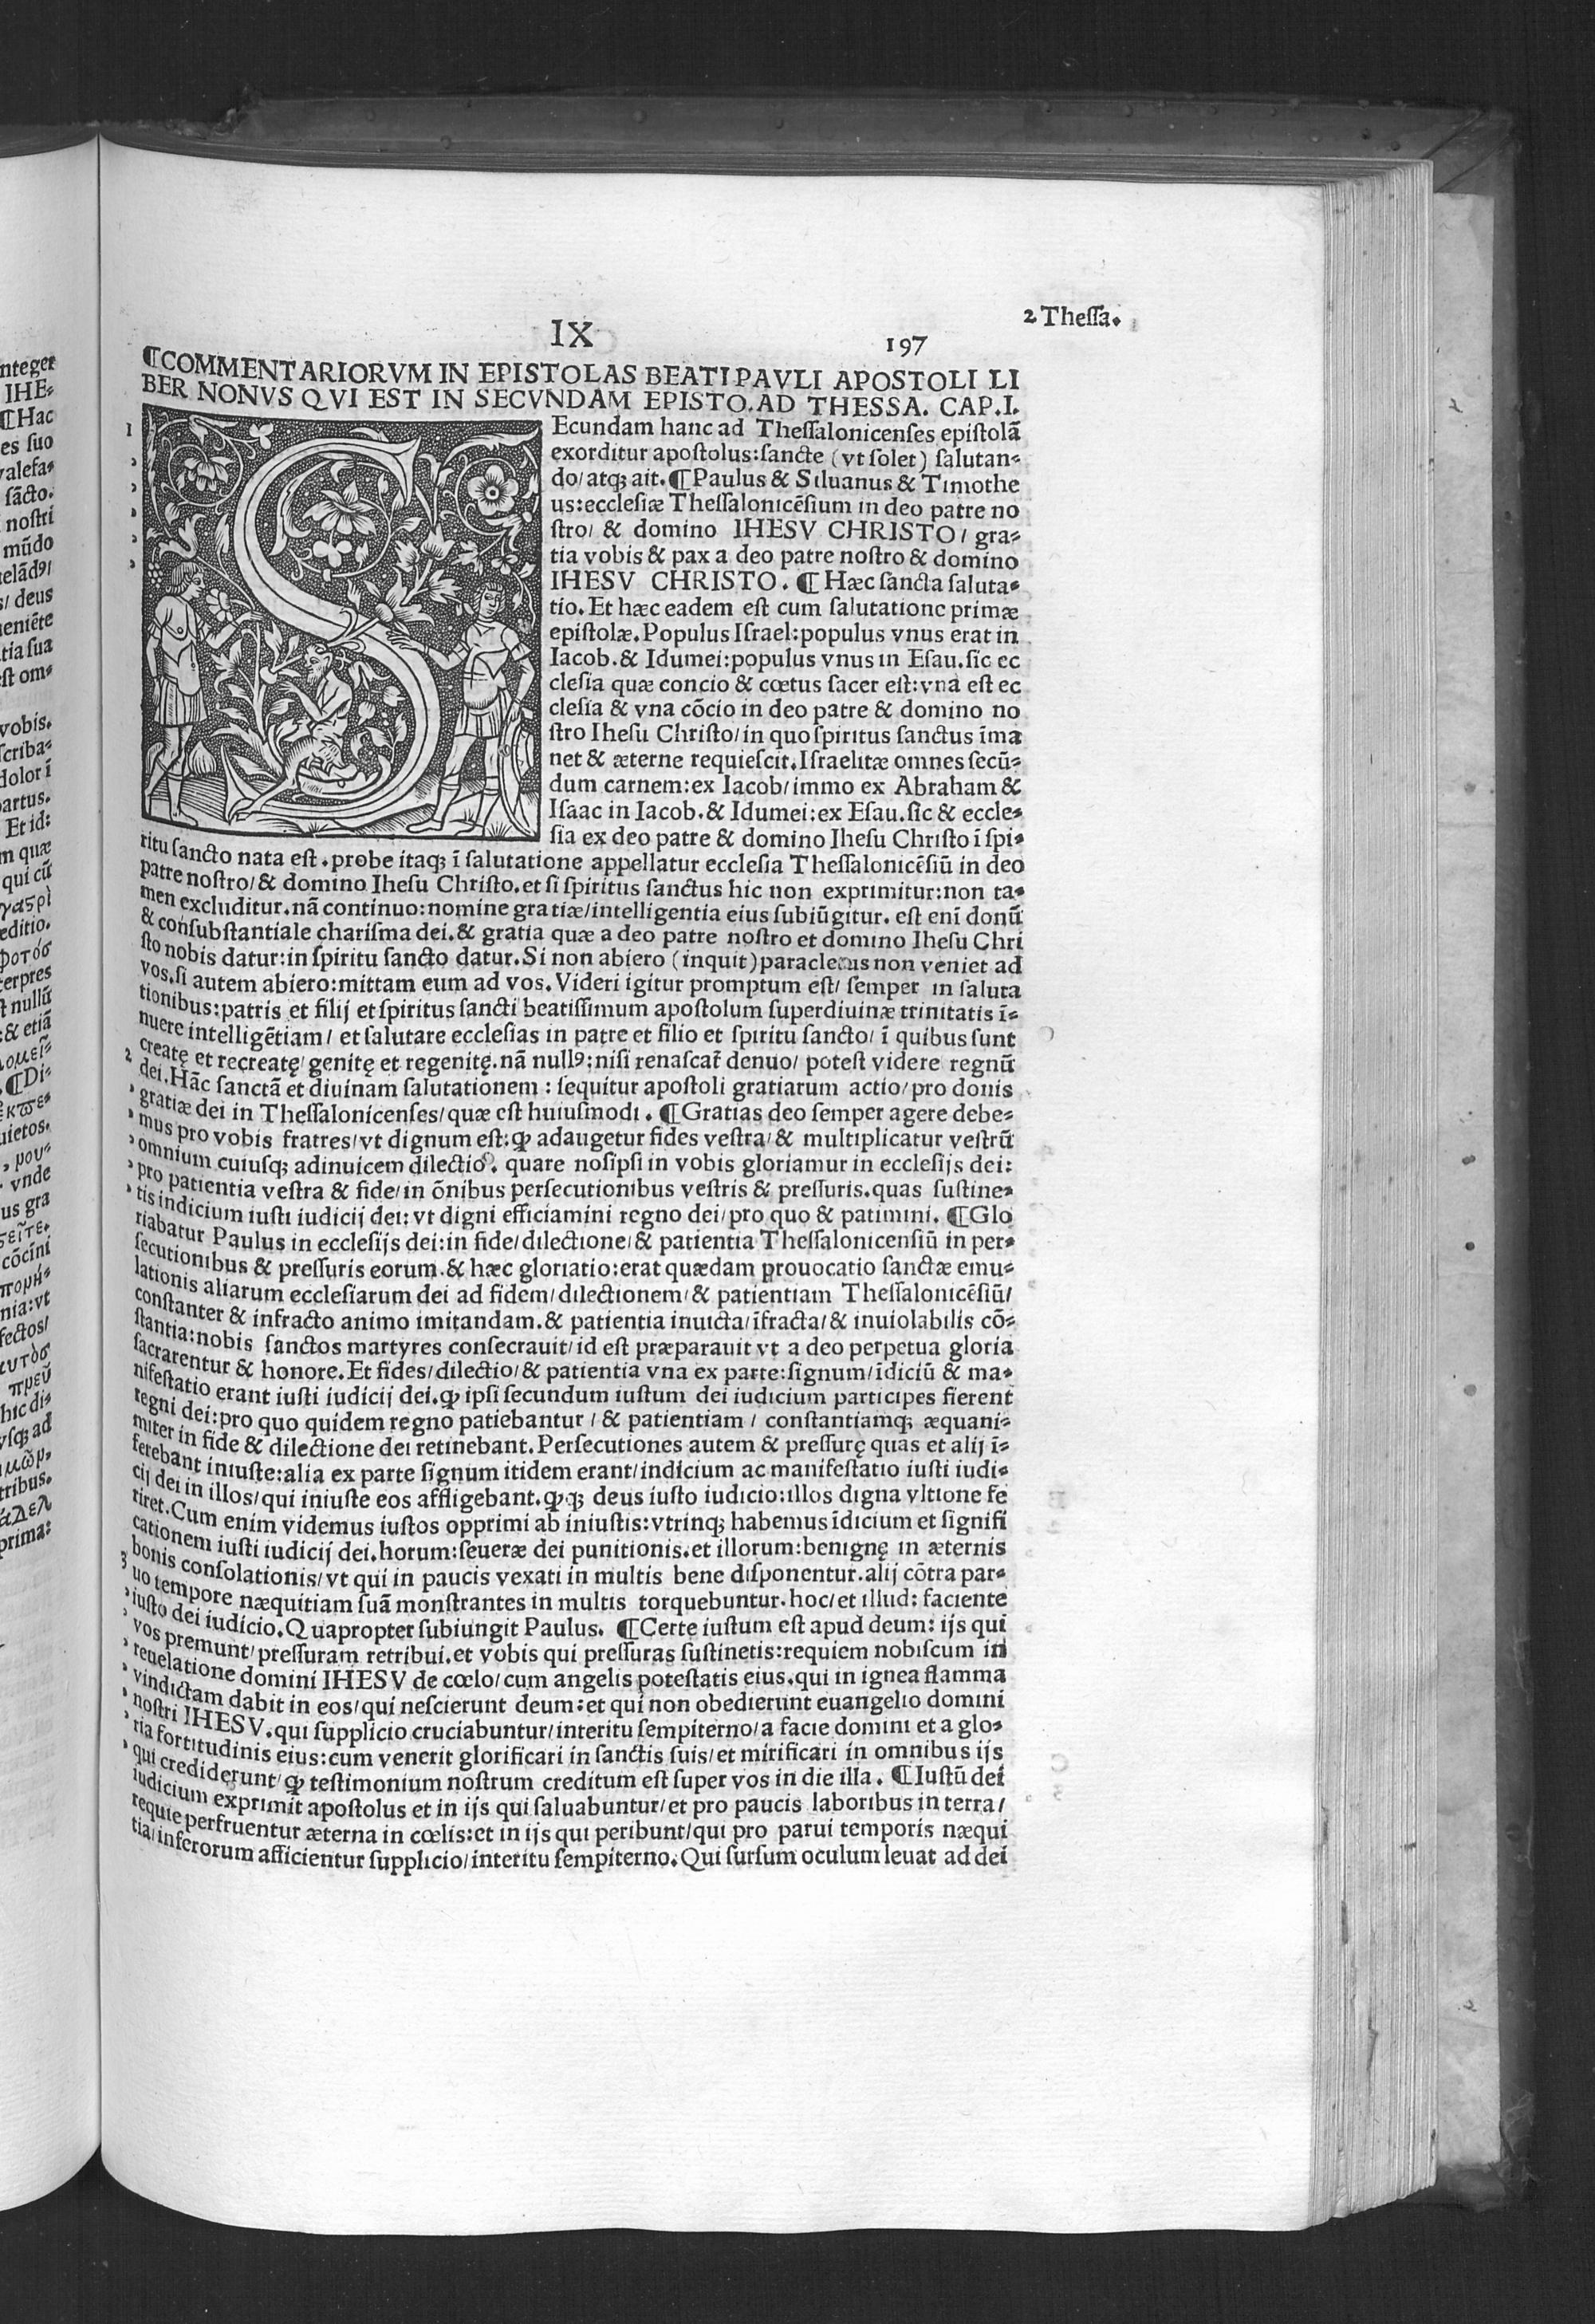 2 Theſſa.
IX
197
¶COMMENTARIORVM IN EPISTOLAS BEATI PAVLI APOSTOLI LI
BER NONVS QVI EST IN SECVNDAM EPISTO. AD THESSA. CAP. I.
1 SEcundam hanc ad Theſſalonicenſes epiſtolā
exorditur apoſtolus: ſancte (vt ſolet) ſalutan⸗
do/ atq; ait. ¶Paulus & Siluanus & Timothe
us: eccleſiæ Theſſalonicēſium in deo patre no
ſtro/ & domino IHESV CHRISTO/ gra⸗
tia vobis & pax a deo patre noſtro & domino
IHESV CHRISTO. ¶Hæc ſancta ſaluta⸗
tio. Et hæc eadem eſt cum ſalutatione primæ
epiſtolæ. Populus Iſrael: populus vnus erat in
Iacob. & Idumei: populus vnus in Eſau. ſic ec
cleſia quæ concio & cœtus ſacer eſt: vna eſt ec
cleſia & vna cōcio in deo patre & domino no
ſtro Iheſu Chriſto/ in quo ſpiritus ſanctus īma
net & æterne requieſcit. Iſraelitæ omnes ſecū⸗
dum carnem: ex Iacob/ immo ex Abraham &
Iſaac in Iacob. & Idumei: ex Eſau. ſic & eccle⸗
ſia ex deo patre & domino Iheſu Chriſto ī ſpi⸗
ritu ſancto nata eſt. probe itaq; ī ſalutatione appellatur eccleſia Theſſalonicēſiū in deo
patre noſtro/ & domino Iheſu Chriſto. et ſi ſpiritus ſanctus hic non exprimitur: non ta⸗
men excluditur. nā continuo: nomine gratiæ/ intelligentia eius ſubiūgitur. eſt enī donū
& conſubſtantiale chariſma dei. & gratia quæ a deo patre noſtro et domino Iheſu Chri
ſto nobis datur: in ſpiritu ſancto datur. Si non abiero (inquit) paracletus non veniet ad
vos. ſi autem abiero: mittam eum ad vos. Videri igitur promptum eſt/ ſemper in ſaluta
tionibus: patris et filij et ſpiritus ſancti beatiſſimum apoſtolum ſuperdiuinæ trinitatis ī⸗
nuere intelligētiam/ et ſalutare eccleſias in patre et filio et ſpiritu ſancto/ ī quibus ſunt
creatę et recreatę/ genitę et regenitę. nā nullꝰ: niſi renaſcat̄ denuo/ poteſt videre regnū
2 dei. Hāc ſanctā et diuinam ſalutationem: ſequitur apoſtoli gratiarum actio/ pro donis
gratiæ dei in Theſſalonicenſes/ quæ eſt huiuſmodi. ¶Gratias deo ſemper agere debe⸗
mus pro vobis fratres/ vt dignum eſt: ꝙ adaugetur fides veſtra/ & multiplicatur veſtrū
omnium cuiuſq; adinuicem dilectio. quare noſipſi in vobis gloriamur in eccleſijs dei:
pro patientia veſtra & fide/ in ōnibus perſecutionibus veſtris & preſſuris. quas ſuſtine⸗
tis indicium iuſti iudicij dei: vt digni efficiamini regno dei/ pro quo & patimini. ¶Glo
riabatur Paulus in eccleſijs dei: in fide/ dilectione/ & patientia Theſſalonicenſiū in per⸗
ſecutionibus & preſſuris eorum. & hæc gloriatio: erat quædam prouocatio ſanctæ emu⸗
lationis aliarum eccleſiarum dei ad fidem/ dilectionem/ & patientiam Theſſalonicēſiū/
conſtanter & infracto animo imitandam. & patientia inuicta/ īfracta/ & inuiolabilis cō⸗
ſtantia: nobis ſanctos martyres conſecrauit/ id eſt præparauit vt a deo perpetua gloria
ſacrarentur & honore. Et fides/ dilectio/ & patientia vna ex parte: ſignum/ īdiciū & ma⸗
nifeſtatio erant iuſti iudicij dei. ꝙ ipſi ſecundum iuſtum dei iudicium participes fierent
regni dei: pro quo quidem regno patiebantur/ & patientiam/ conſtantiamq; æquani⸗
miter in fide & dilectione dei retinebant. Perſecutiones autem & preſſurę quas et alij ī⸗
ferebant iniuſte: alia ex parte ſignum itidem erant/ indicium ac manifeſtatio iuſti iudi⸗
cij dei in illos/ qui iniuſte eos affligebant. ꝙq; deus iuſto iudicio: illos digna vltione fe
riret. Cum enim videmus iuſtos opprimi ab iniuſtis: vtrinq; habemus īdicium et ſignifi
cationem iuſti iudicij dei. horum: ſeueræ dei punitionis. et illorum: benignę in æternis
bonis conſolationis/ vt qui in paucis vexati in multis bene diſponentur. alij cōtra par⸗
3 uo tempore næquitiam ſuā monſtrantes in multis torquebuntur. hoc/ et illud: faciente
iuſto dei iudicio. Quapropter ſubiungit Paulus. ¶Certe iuſtum eſt apud deum: ijs qui
vos premunt/ preſſuram retribui. et vobis qui preſſuras ſuſtinetis: requiem nobiſcum in
reuelatione domini IHESV de cœlo/ cum angelis poteſtatis eius. qui in ignea flamma
vindictam dabit in eos/ qui neſcierunt deum: et qui non obedierunt euangelio domini
noſtri IHESV. qui ſupplicio cruciabuntur/ interitu ſempiterno/ a facie domini et a glo⸗
ria fortitudinis eius: cum venerit glorificari in ſanctis ſuis/ et mirificari in omnibus ijs
qui crediderunt/ ꝙ teſtimonium noſtrum creditum eſt ſuper vos in die illa. ¶Iuſtū dei
iudicium exprimit apoſtolus et in ijs qui ſaluabuntur/ et pro paucis laboribus in terra/
requie perfruentur æterna in cœlis: et in ijs qui peribunt/ qui pro parui temporis næqui
tia/ inferorum afficientur ſupplicio/ interitu ſempiterno. Qui ſurſum oculum leuat ad dei